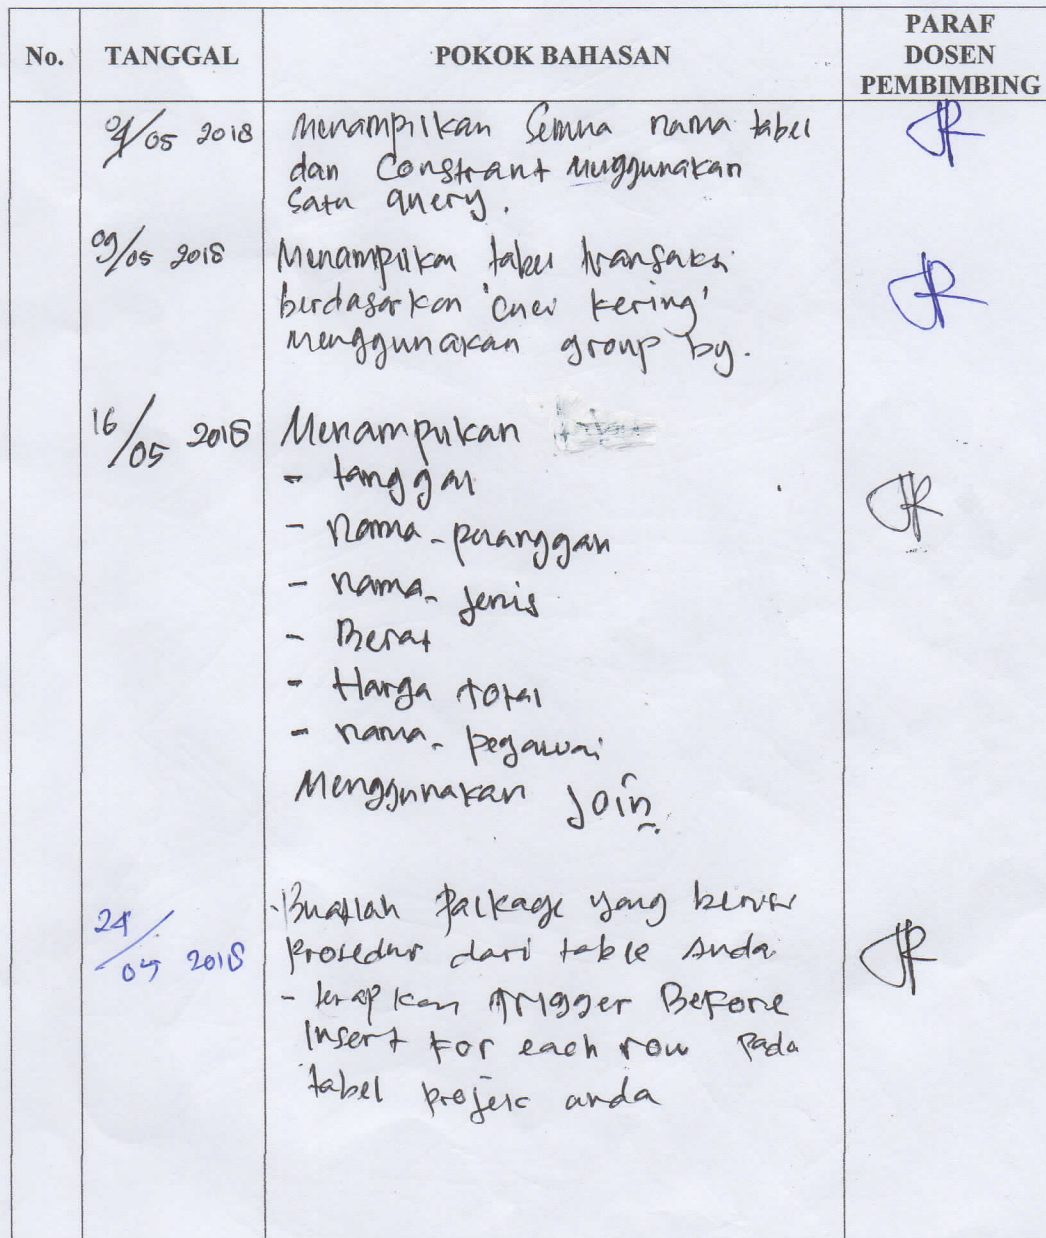 No. TANGGAL POKOK BAHASAN PARAF
DOSEN
PEMBIMBING
05 2018 Menampilkan Semua nama tabel
dan Constrant Menggunakan
Satu query.
09/05 2018 Menampilkan tabel transaksi
berdasarkan 'Cuci kering'
Menggunakan group by.
16/05 2018 Menampilkan
- tanggal
- nama_pelanggan
- nama_jenis
- Berat
- Harga total
- nama_pegawai
Menggunakan Join
24/05 2018 -Buatlah Package yang berisi
Prosedur dari table Anda
- terapkan Trigger Before
Insert For each row Pada
tabel projek anda